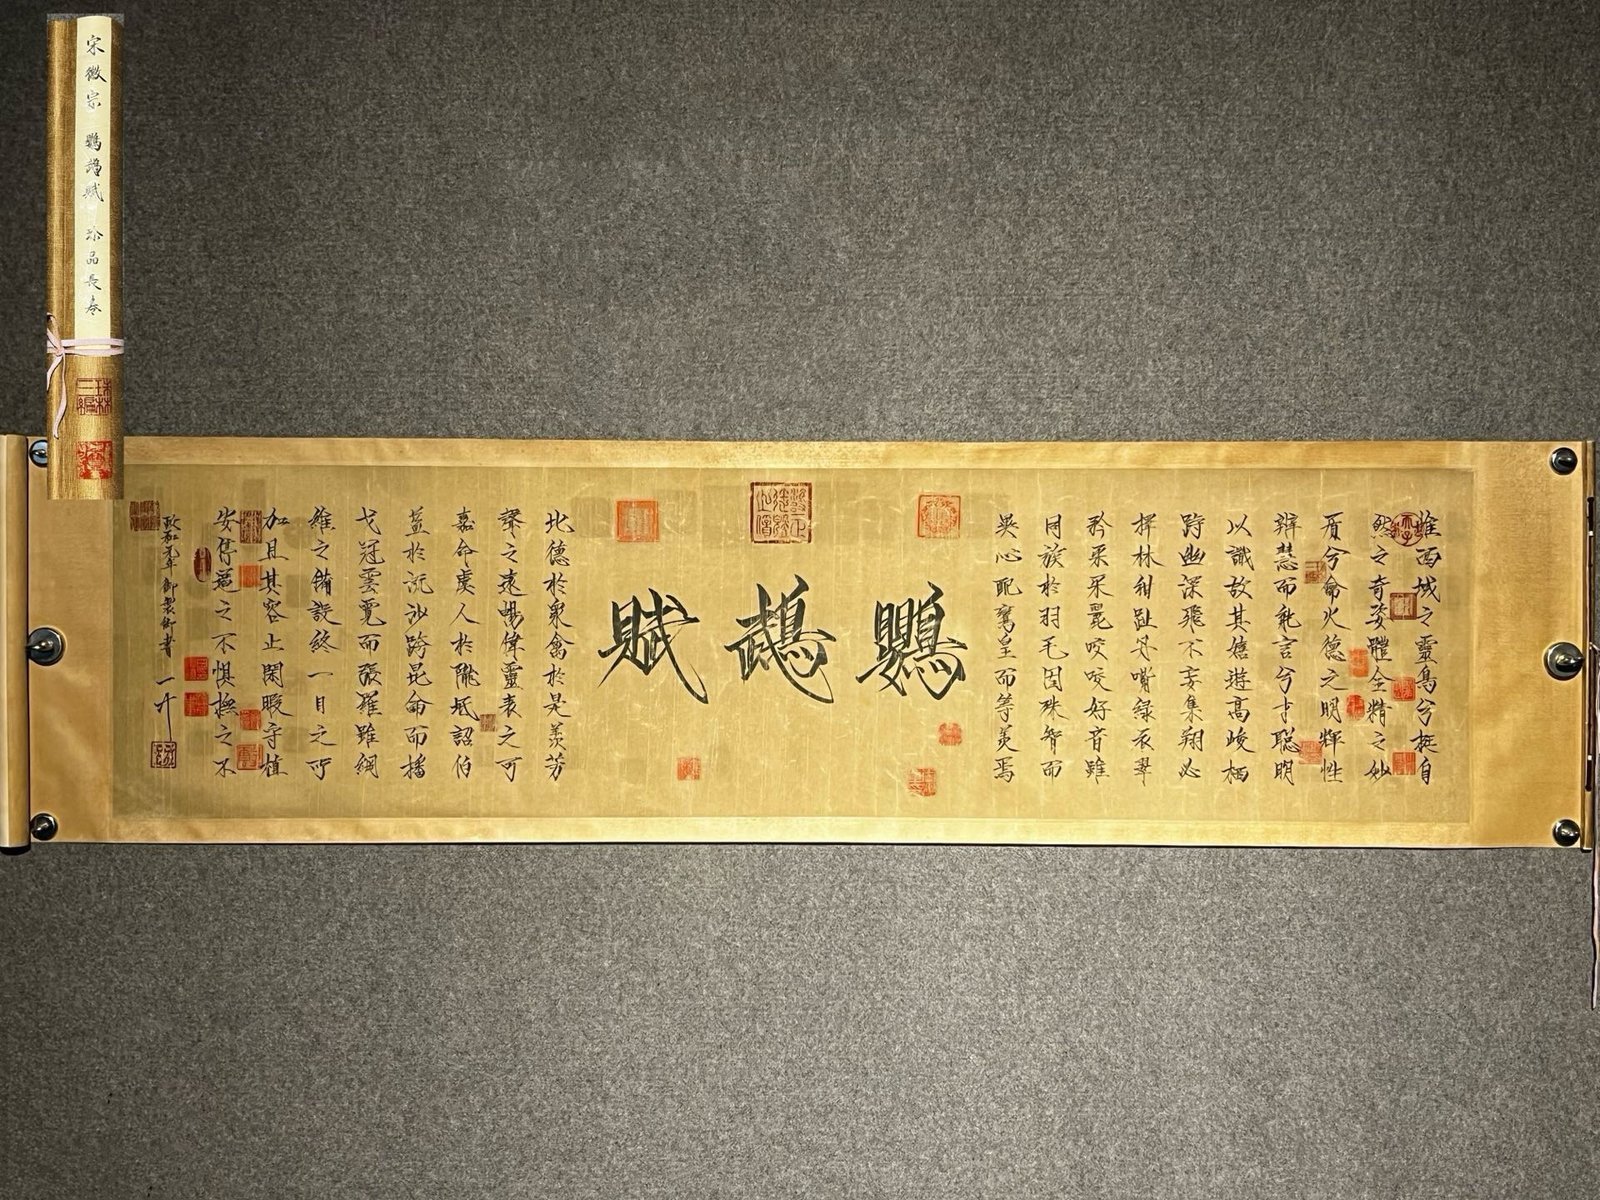 宋徽宗 鸚鵡賦 珍品長卷
惟西域之靈鳥兮挺自
然之奇姿體全精之妙
質兮合火德之明輝性
辯慧而能言兮才聰明
以識故其嬉遊高峻栖
跱幽深飛不妄集翔必
擇林紺趾丹嘴綠衣翠
衿采采麗咬咬好音雖
同族於羽毛固殊智而
異心配鸞皇而等美焉
鸚鵡賦
比德於眾禽於是羨芳
聲之遠暢偉靈表之可
嘉命虞人於隴坻詔伯
益於流沙跨昆侖而播
弋冠雲霓而張羅雖綱
維之備設終一目之所
加且其容止閑暇守植
安停逼之不懼撫之不
政和元年御製御書
三編 珠林